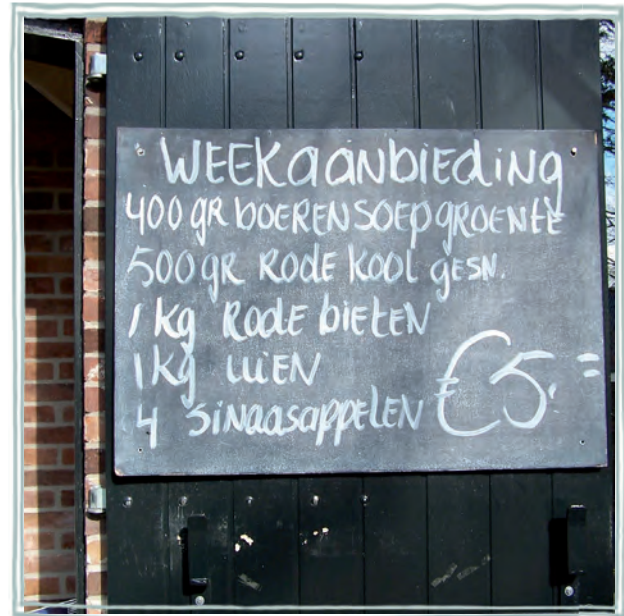 WEEKaanbieding
400 gr boerensoepgroente
500 gr rode kool gesn.
1 kg rode bieten
1 kg uien
4 sinaasappelen €5,=